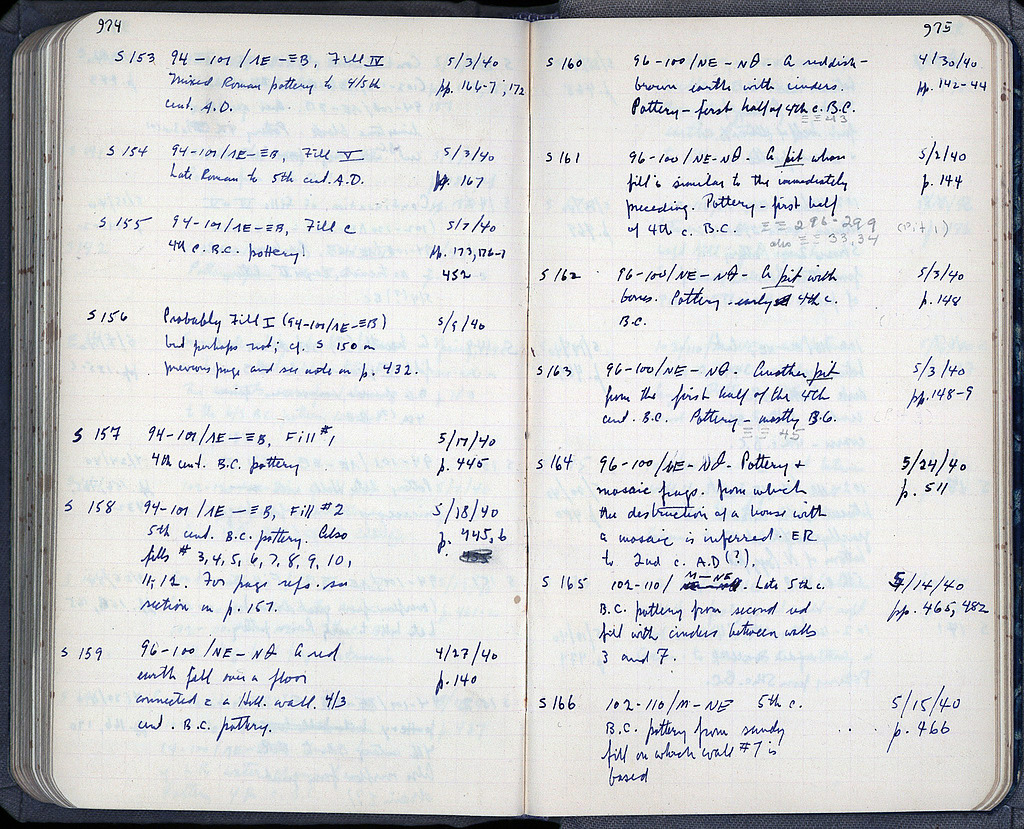 974
S 153 94-101/ΛΕ-ΞΒ, Fill IV 5/3/40
Mixed Roman pottery to 4/5th pp. 166-7; 172
cent. A.D.
S 154 94-101/ΛΕ-ΞΒ, Fill V 5/3/40
Late Roman to 5th cent. A.D. p. 167
S 155 94-101/ΛΕ-ΞΒ, Fill C 5/7/40
4th c. B.C. pottery! pp. 173, 176-7
452
S 156 Probably Fill I (94-101/ΛΕ-ΞΒ) 5/9/40
but perhaps not; cf. S 150 on
previous page and see note on p. 432.
S 157 94-101/ΛΕ-ΞΒ, Fill #1 5/17/40
4th cent. B.C. pottery p. 445
S 158 94-101/ΛΕ-ΞΒ, Fill #2 5/18/40
5th cent. B.C. pottery. Also p. 445, 6
fills # 3, 4, 5, 6, 7, 8, 9, 10,
11, 12. For page refs. see
section on p. 167.
S 159 96-100/ΝΕ-ΝΘ A red 4/27/40
earth fill over a floor p. 140
connected c a Hell. wall. 4/3
cent. B.C. pottery.
975
S 160 96-100/ΝΕ-ΝΘ- A reddish- 4/30/40
brown earth with cinders. pp. 142-44
Pottery - first half of 4th c. B.C.
ΞΞ 43
S 161 96-100/ΝΕ-ΝΘ- A pit whose 5/2/40
fill is similar to the immediately p. 144
preceding. Pottery - first half
of 4th c. B.C. ΞΞ 296-299 (Pit 1)
also ΞΞ 33, 34
S 162 96-100/ΝΕ-ΝΘ- A pit with 5/3/40
bones. Pottery - early 4th c. p. 148
B.C.
S 163 96-100/ΝΕ-ΝΘ- Another pit 5/3/40
from the first half of the 4th pp. 148-9
cent. B.C. Pottery - mostly B.G.
ΞΞ 45
S 164 96-100/ΝΕ-ΝΘ- Pottery + 5/24/40
mosaic frags. from which p. 511
the destruction of a house with
a mosaic is inferred. ER
to 2nd c. A.D (?).
S 165 102-110/Μ-ΝΕ Late 5th c. 5/14/40
B.C. pottery from second red pp. 465, 482
fill with cinders between walls
3 and 7.
S 166 102-110/Μ-ΝΕ 5th c. 5/15/40
B.C. pottery from sandy p. 466
fill on which wall #7 is
based